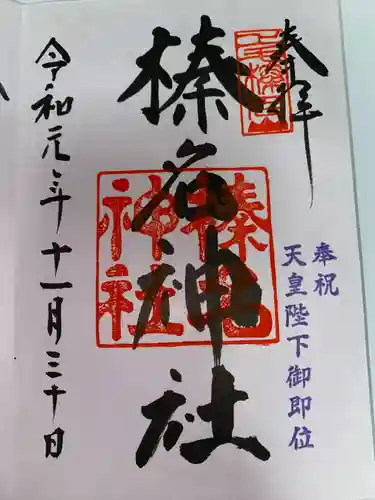 奉拝
奉祝
天皇陛下御即位
榛名神社
榛名神社
令和元年十一月三十日